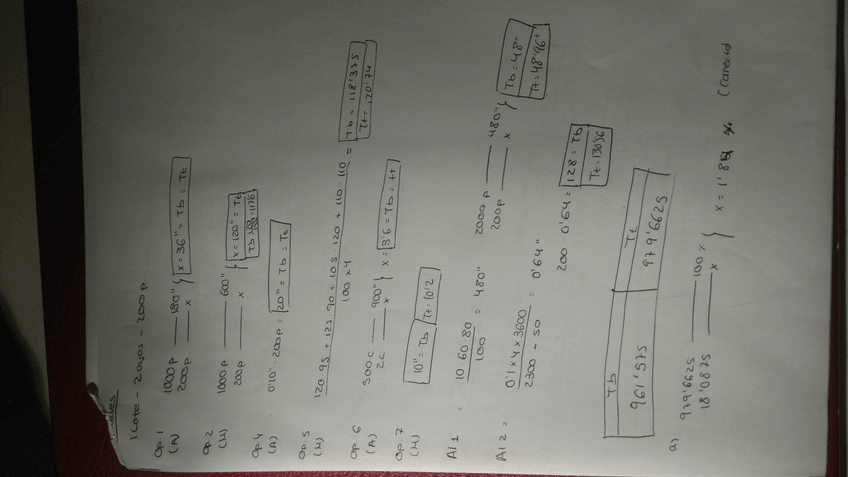 1 Lote - 2 cajas - 200 p.
Op. 1 1000 p 180"
(A) 200 p x } x = 36" = Tb = Tt
Op. 2 1000 p 600"
(H) 200 p x } x = 120" = Tb
Op. 4 0'10" · 200 p = 20" = Tb = Tt
(A)
Op. 5 120 · 95 + 125 · 90 + 105 · 120 + 110 · 110 = Tb = 118'375
(H) 100 x 4 Tt = 120'74
Op. 6 500 c 900"
(A) 2 c x } x = 3'6 = Tb = tt
Op. 7
(H) 10" = Tb Tt = 10'2
A1 1 = 10 · 60 · 80 = 480" 2000 p 480"
100 200 p x } Tb = 48" Tt = 48'96"
A1 2 = 0'1 x 4 x 3600 = 0'64" 200 · 0'64 = 128 = Tb
2300 - 50 Tt = 130'56
Tb Tt
961'575 979'6625
a) 979'6625 100 %
18'0875 x } x = 1'8 %